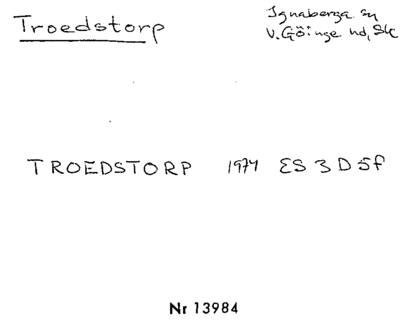 Troedstorp
Ignaberga sn
V.Göinge hd, Sk
TROEDSTORP 1974 ES 3 D 5f
Nr 13984